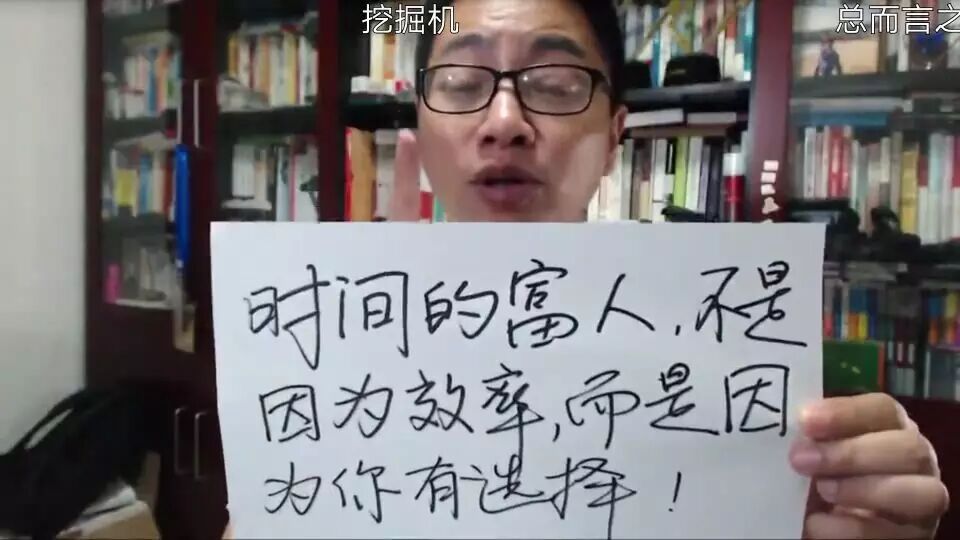 挖掘机
总而言之
时间的富人,不是
因为效率,而是因
为你有选择!